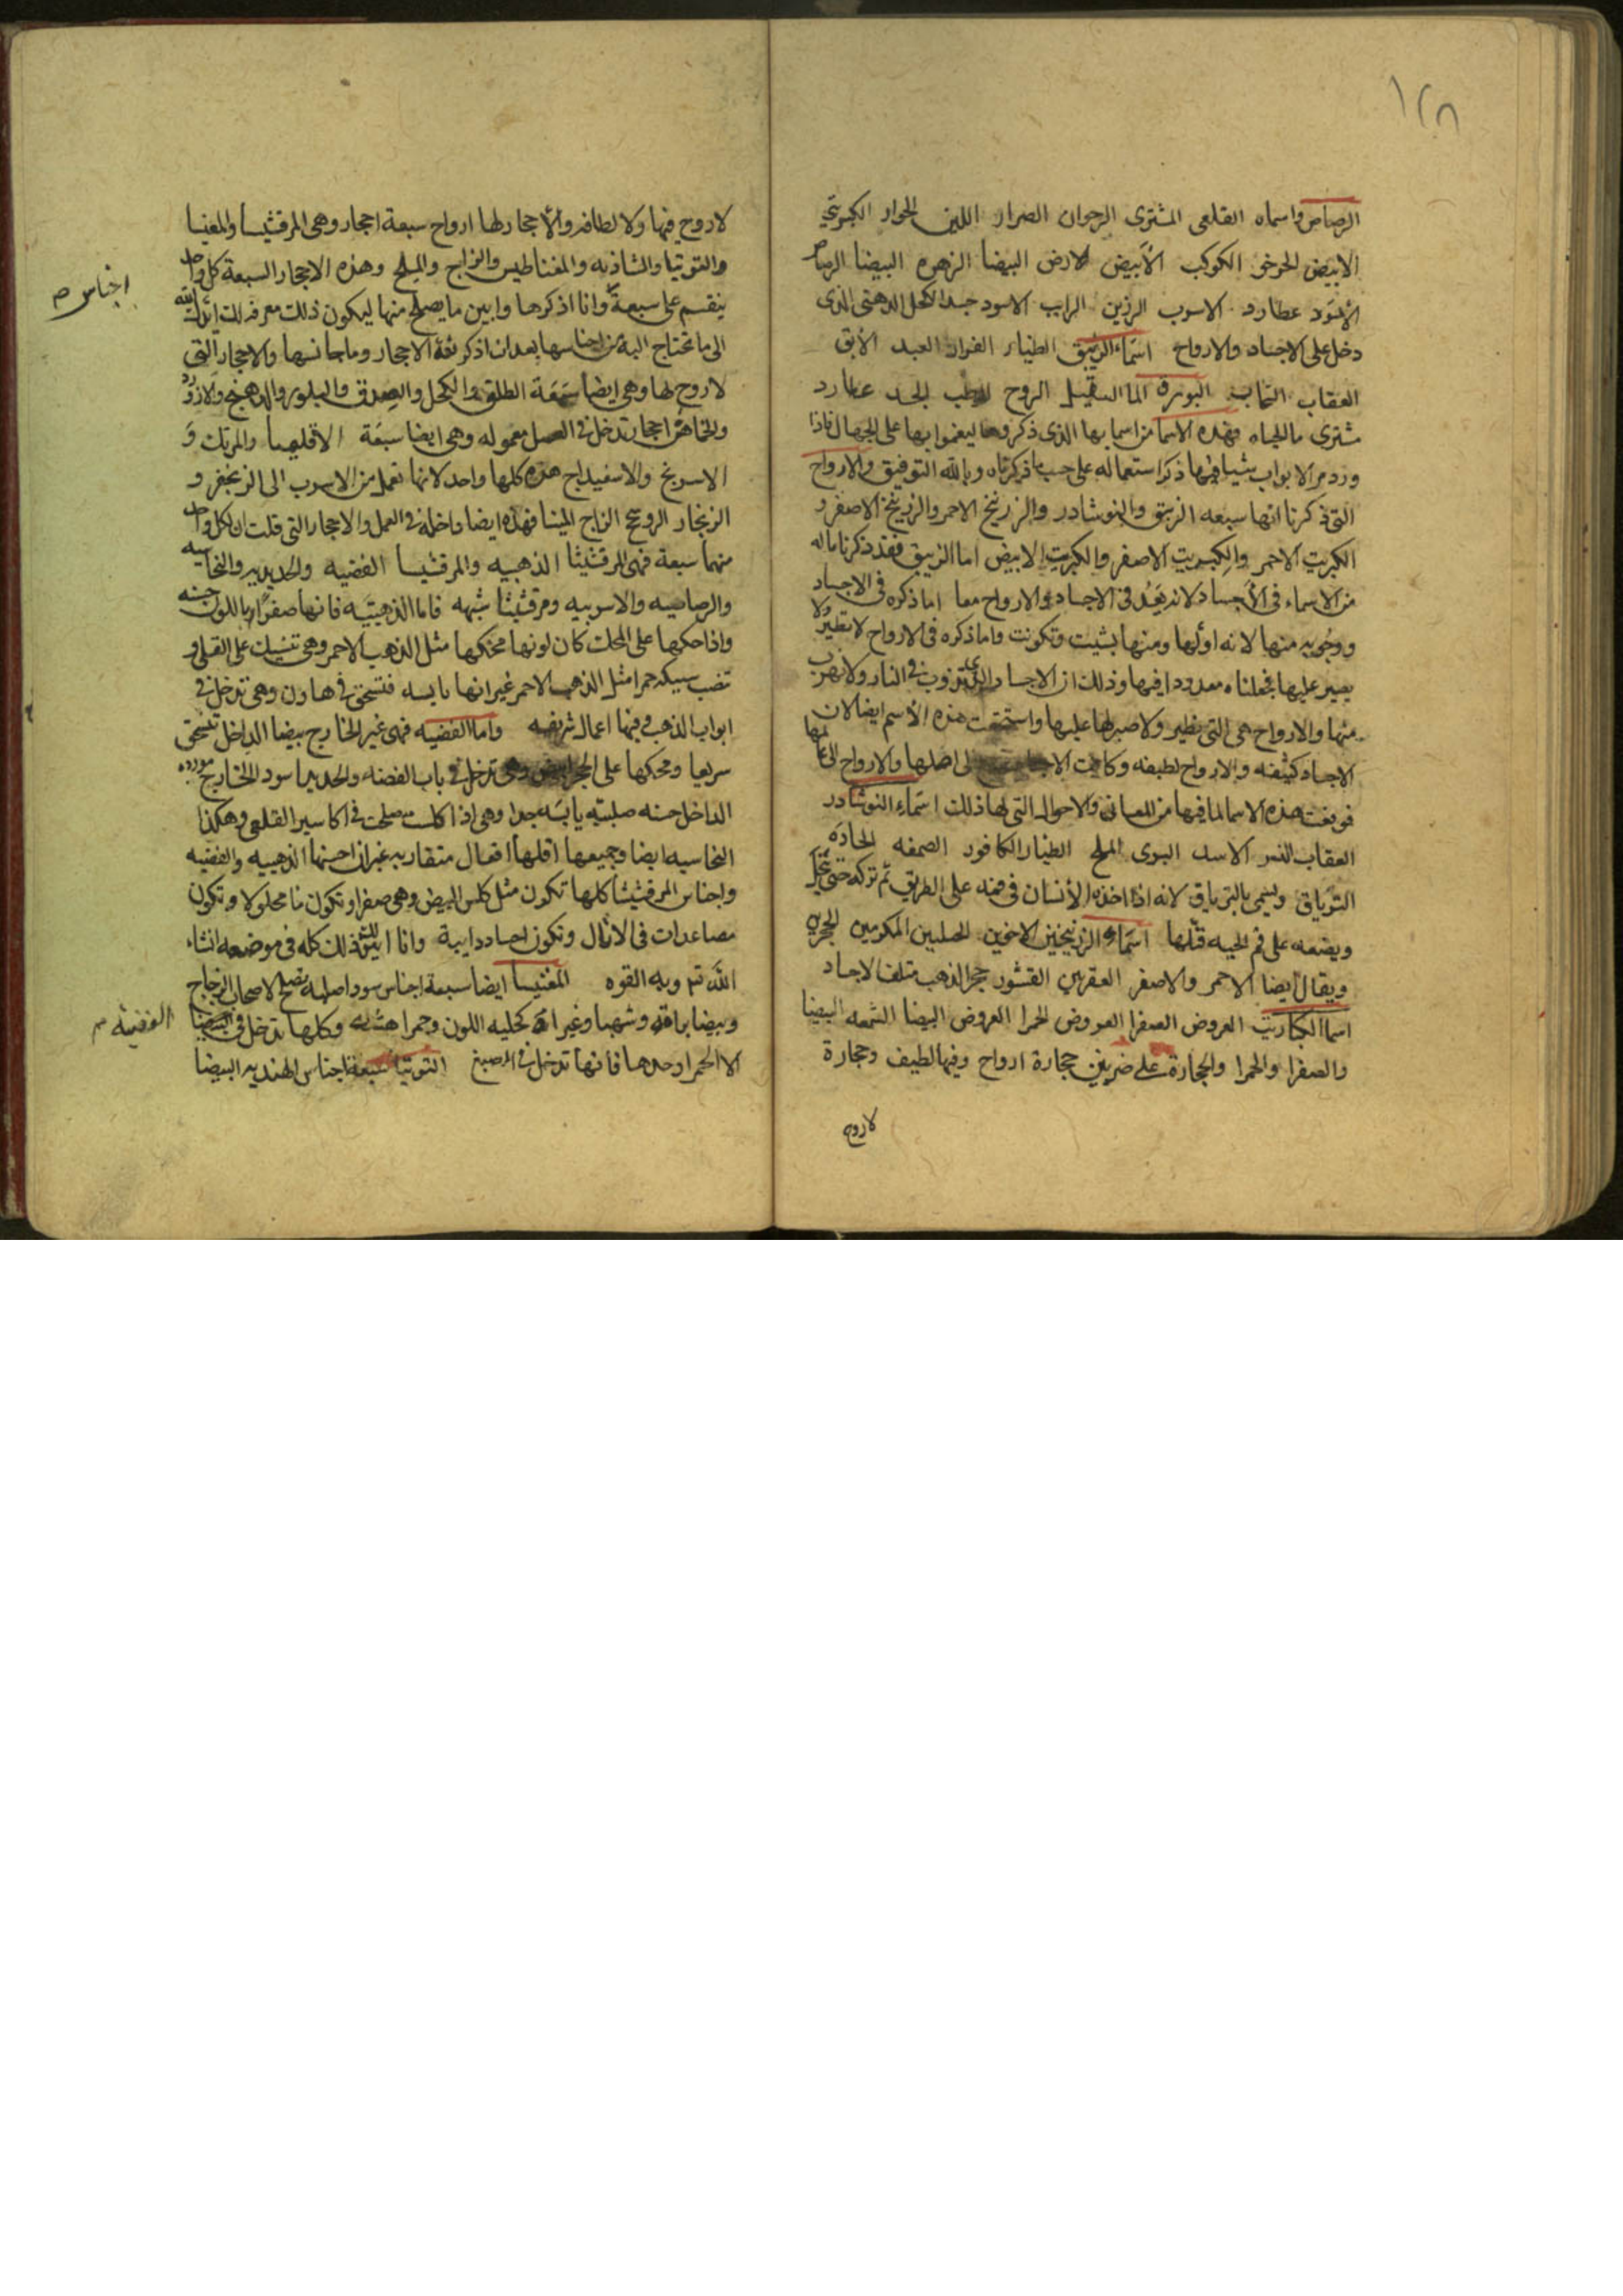 ١٢٨
الرصاص واسماه القلعى المشترى الرجوان الصرار اللين الخوار الكبريتى
الابيض الخوخى الكوكب الأبيض الارض البيضا الزهره البيضا الرصاص
الأسود عطارد الاسرب الرزين الراب الاسود جسد الكحل الدهنى الذى
دخل على الاجساد والارواح اسماء الزيبق الطيار الفرار العبد الأبق
العقاب الما الثقيل الروح عطارد
مشترى ما الحياه فهذه الاسما من اسما بها الذى ذكروها ليغموا بها على الجهال فاذا
ورد من الابواب شيا فيها ذكر استعماله على حسب ما ذكرناه وبالله التوفيق والارواح
التى ذكرنا انها سبعه الزيبق والنوشادر والزرنيخ الاحمر والزرنيخ الاصفر و
الكبريت الاحمر والكبريت الاصفر والكبريت الابيض اما الزيبق فقد ذكرنا ماله
من الاسماء فى الأجساد لانه يعد فى الاجساد والارواح معا اما ذكره فى الاجساد
ووجوبه منها لانه اولها ومنها بنيت وتكونت واما ذكره فى الارواح لانه يطير ولا
يصبر عليها فجعلناه معدودا فيها وذلك ان الاجساد التى تذوب فى النار ولا تهرب
منها والارواح هى التى تطير ولا صبر لها عليها واستحقت هذه الأسم ايضا لان
الاجساد كثيفه والارواح لطيفه وكانت الى اصلها والارواح الى عالمها
فوقعت هذه الاسما لما فيها من المعانى والاحوال التى لها ذلك اسماء النوشادر
العقاب النسر الاسد البرى الملح الطيار الكافور الصمغه الحاده
الترياق ويسمى بالترياق لانه اذا اخذه الأنسان فى فمه على الطريق ثم تركه حتى ينحل
ويضعه على فم الحيه قتلها اسماء الزرنيخين الاخوين المكرمين الحجرين
ويقال ايضا الاحمر والاصفر العقربين القشور حجر الذهب متلف الاجساد
اسما الكباريت العروض الصفرا العروض الحمرا العروض البيضا الشمعه البيضا
والصفرا والحمرا والحجارة على ضربين حجارة ارواح وفيها لطيف وحجارة
لا روح
لا روح فيها ولا لطافه والأحجار لها ارواح سبعة احجار وهى المرقشيسا والمغنيسا
والتوتيا والشاذنه والمغناطيس والزاج والملح وهذه الاحجار السبعة كل واحد
ينقسم على سبعة وانا اذكرها وابين ما يصلح منها ليكون ذلك معرفه لك
الى ما تحتاج اليه من اجناسها بعد ان اذكر بقية الاحجار وما جانسها والاحجار التى
لا روح لها وهى ايضا سبعة الطلق والكحل والصدف والبلور والدهنج واللازورد
والخاهن احجار تدخل فى العمل معموله وهى ايضا سبعة الاقليميا والمرتك و
الاسرنج والاسفيداج هذه كلها واحد لانها تعمل من الاسرب الى الزنجفر و
الزنجار الروسختج الزاج المينا فهذه ايضا داخله فى العمل والاحجار التى قلت ان كل واحد
منهما سبعة فهى المرقشيثا الذهبيه والمرقشيسا الفضيه والحديديه والنحاسيه
والرصاصيه والاسربيه ومرقشيثا شبهه فاما الذهبية فانها صفرا باللون حسنه
واذا حكها على المحك كان لونها محكها مثل الذهب الاحمر وهى تنسبك على القلى و
تصب سبيكه حمرا مثل الذهب الاحمر غير انها يابسه فتسحق فى هاون وهى تدخل فى
ابواب الذهب وفيها اعمال شريفه واما الفضيه فهى غير الخارج بيضا الداخل تنسحق
سريعا ومحكها على الحجر ابيض وهى تدخل فى باب الفضه والحديد اسود الخارج مورده
الداخل حسنه صلبة يابسه جدا وهى اذا كلست صلحت فى اكاسير القلعى وهكذا
النحاسيه ايضا وجميعها اقلها افعال متقاربه غير ان احسنها الذهبيه والفضيه
واجناس المرقشيثا كلها تكون مثل كلس البيض وهى صفرا وتكون ما محلولا وتكون
مصاعدات فى الأثال وتكون اجساد دايبة وانا ابين لك ذلك كله فى موضعه انشاء
الله تع وبه القوه المغنيسا ايضا سبعة اجناس سود اصلبه تصلح لاصحاب الزجاج
وبيضا براقه وشهبا وغبرا كحليه اللون وحمرا هشه وكلها تدخل فى
الا الحمرا وحدها فانها تدخل فى الصبغ التوتيا سبعة اجناس الهنديه البيضا
اجناس م
الفضيه م